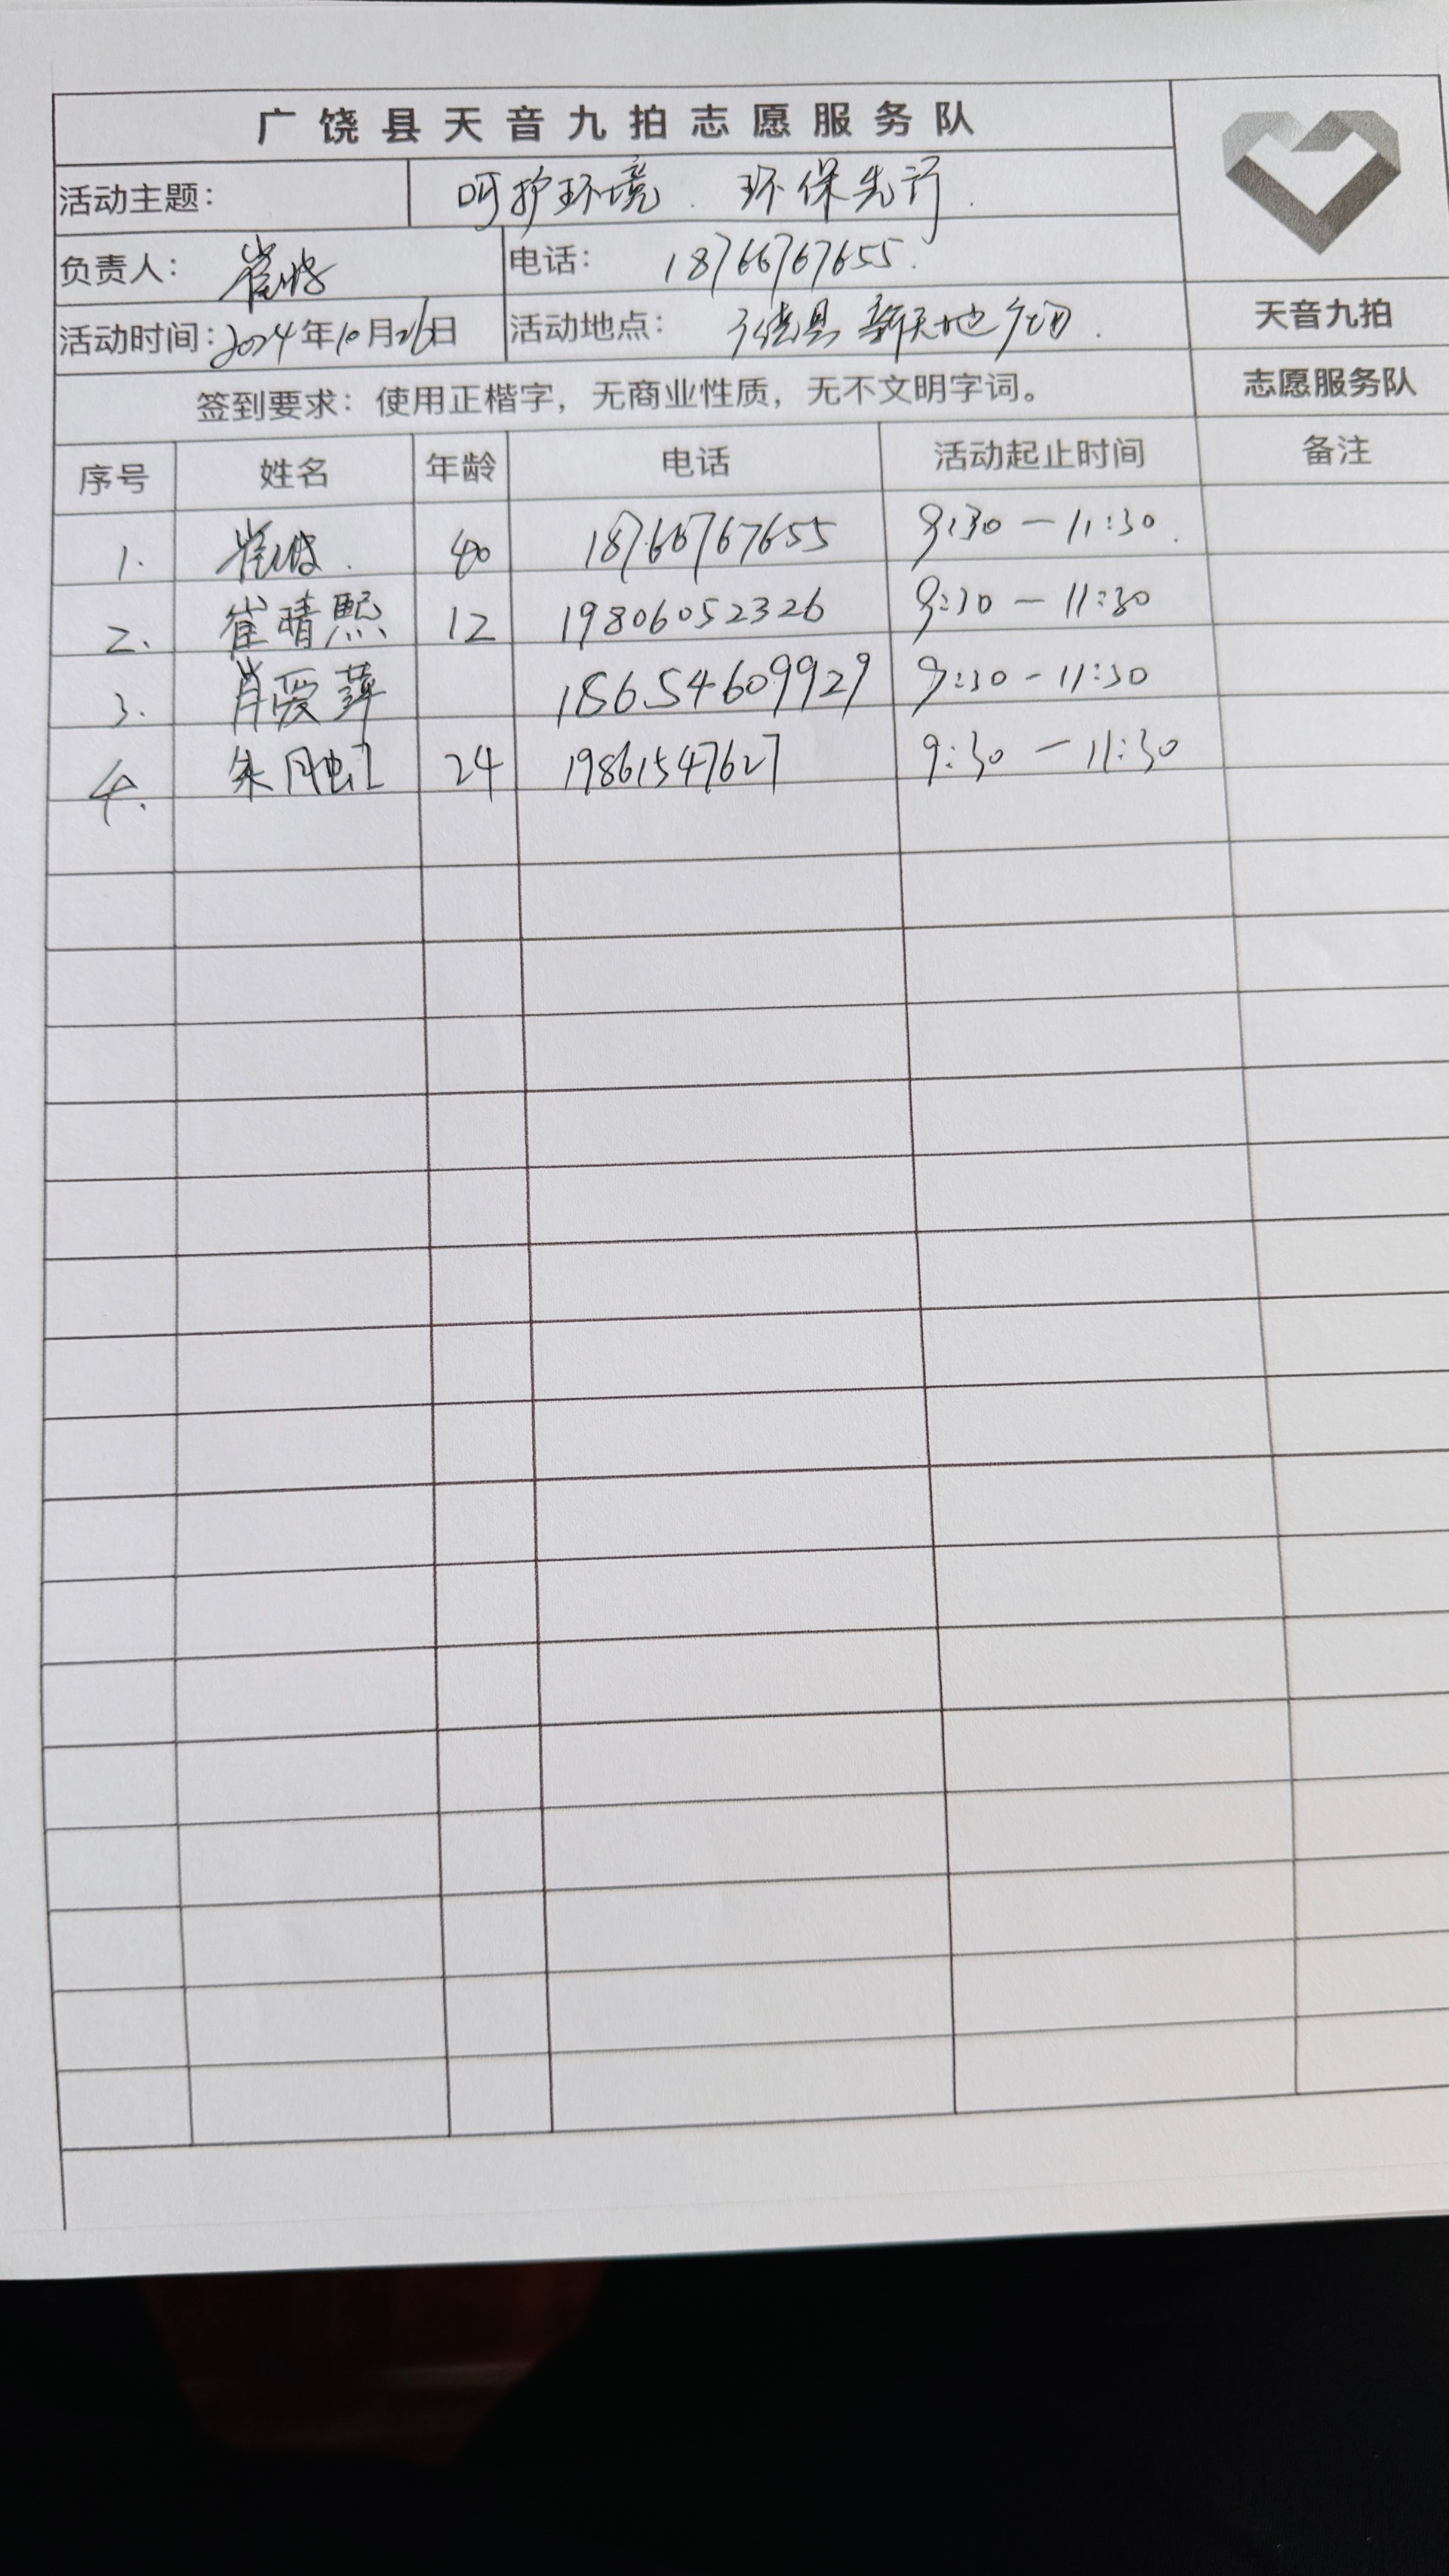 广饶县天音九拍志愿服务队
活动主题： 呵护环境．环保先行．
负责人： 崔波 电话： 18766767655．
活动时间：2024年10月26日 活动地点： 广饶县新天地
天音九拍
志愿服务队
签到要求：使用正楷字，无商业性质，无不文明字词。
序号 姓名 年龄 电话 活动起止时间 备注
1. 崔波． 40 18766767655 9:30 — 11:30．
2. 崔晴熙 12 19806052326 9:30 — 11:30
3. 肖爱萍 18654609929 9:30 - 11:30
4. 朱月虹 24 19861547627 9:30 — 11:30